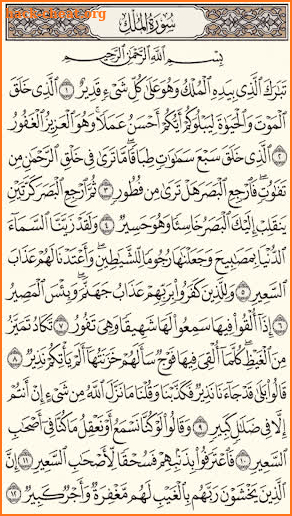 سُورَةُ المُلْكِ
بِسْمِ اللَّهِ الرَّحْمَٰنِ الرَّحِيمِ
تَبَٰرَكَ الَّذِي بِيَدِهِ الْمُلْكُ وَهُوَ عَلَىٰ كُلِّ شَيْءٍ قَدِيرٌ ١ الَّذِي خَلَقَ
الْمَوْتَ وَالْحَيَوٰةَ لِيَبْلُوَكُمْ أَيُّكُمْ أَحْسَنُ عَمَلًا وَهُوَ الْعَزِيزُ الْغَفُورُ
٢ الَّذِي خَلَقَ سَبْعَ سَمَٰوَٰتٍ طِبَاقًا مَّا تَرَىٰ فِي خَلْقِ الرَّحْمَٰنِ مِن
تَفَٰوُتٍ فَارْجِعِ الْبَصَرَ هَلْ تَرَىٰ مِن فُطُورٍ ٣ ثُمَّ ارْجِعِ الْبَصَرَ كَرَّتَيْنِ
يَنقَلِبْ إِلَيْكَ الْبَصَرُ خَاسِئًا وَهُوَ حَسِيرٌ ٤ وَلَقَدْ زَيَّنَّا السَّمَاءَ
الدُّنْيَا بِمَصَٰبِيحَ وَجَعَلْنَٰهَا رُجُومًا لِّلشَّيَٰطِينِ وَأَعْتَدْنَا لَهُمْ عَذَابَ
السَّعِيرِ ٥ وَلِلَّذِينَ كَفَرُوا بِرَبِّهِمْ عَذَابُ جَهَنَّمَ وَبِئْسَ الْمَصِيرُ
٦ إِذَا أُلْقُوا فِيهَا سَمِعُوا لَهَا شَهِيقًا وَهِيَ تَفُورُ ٧ تَكَادُ تَمَيَّزُ
مِنَ الْغَيْظِ كُلَّمَا أُلْقِيَ فِيهَا فَوْجٌ سَأَلَهُمْ خَزَنَتُهَا أَلَمْ يَأْتِكُمْ نَذِيرٌ ٨
قَالُوا بَلَىٰ قَدْ جَاءَنَا نَذِيرٌ فَكَذَّبْنَا وَقُلْنَا مَا نَزَّلَ اللَّهُ مِن شَيْءٍ إِنْ أَنتُمْ
إِلَّا فِي ضَلَٰلٍ كَبِيرٍ ٩ وَقَالُوا لَوْ كُنَّا نَسْمَعُ أَوْ نَعْقِلُ مَا كُنَّا فِي أَصْحَٰبِ
السَّعِيرِ ١٠ فَاعْتَرَفُوا بِذَنبِهِمْ فَسُحْقًا لِّأَصْحَٰبِ السَّعِيرِ ١١ إِنَّ
الَّذِينَ يَخْشَوْنَ رَبَّهُم بِالْغَيْبِ لَهُم مَّغْفِرَةٌ وَأَجْرٌ كَبِيرٌ ١٢